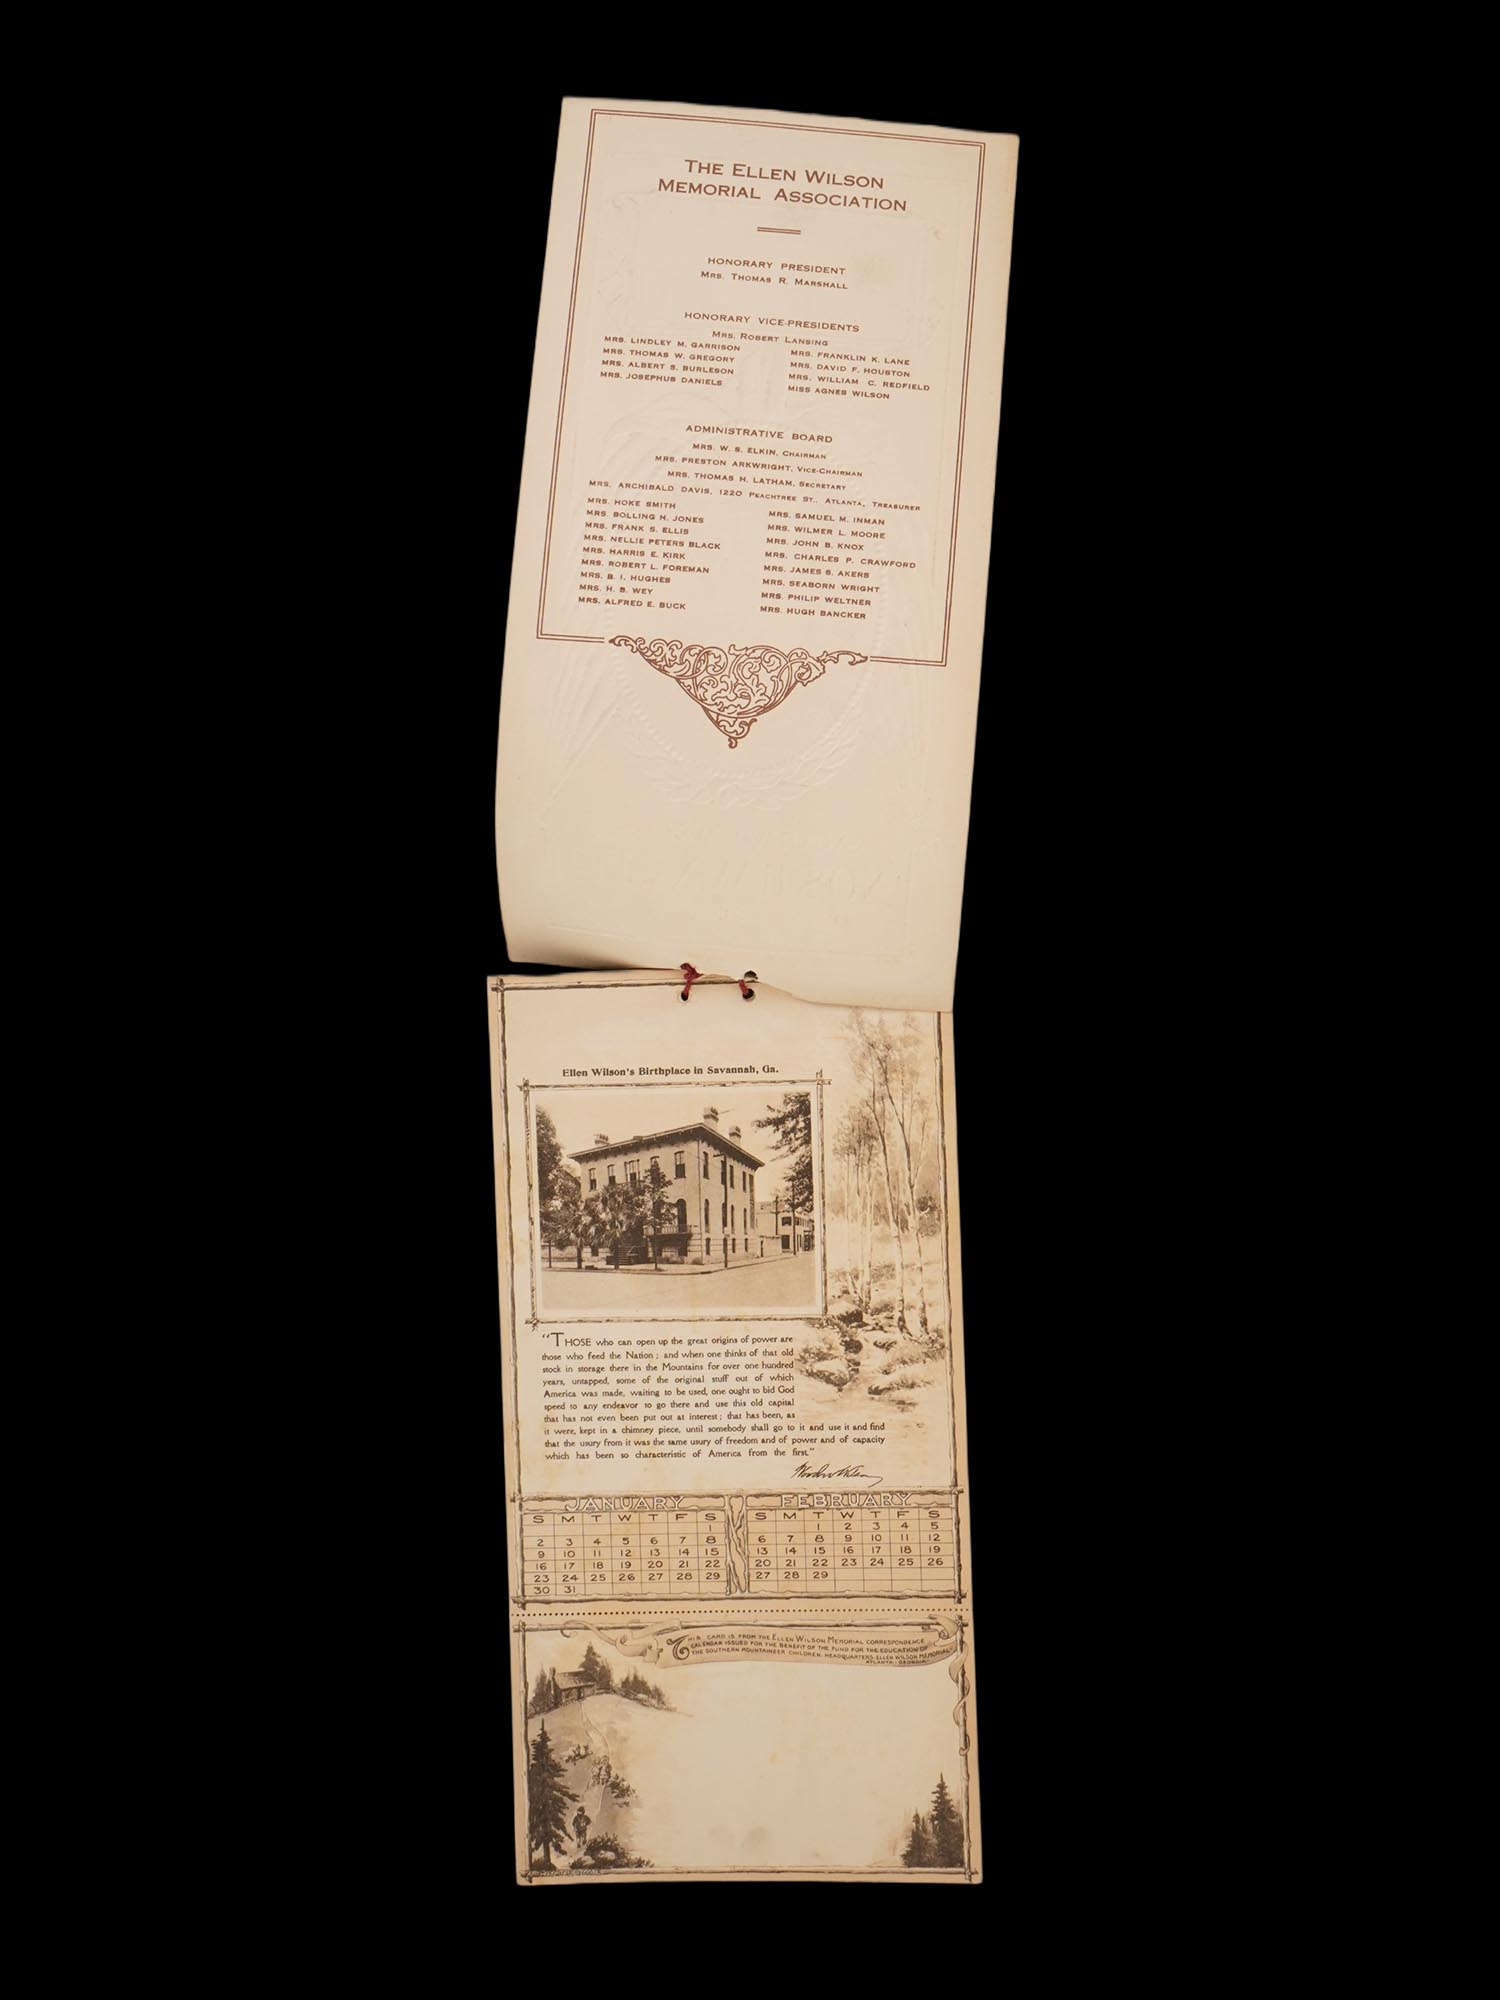 THE ELLEN WILSON
MEMORIAL ASSOCIATION
HONORARY PRESIDENT
MRS. THOMAS R. MARSHALL
HONORARY VICE-PRESIDENTS
MRS. ROBERT LANSING
MRS. LINDLEY M. GARRISON
MRS. THOMAS W. GREGORY
MRS. ALBERT S. BURLESON
MRS. JOSEPHUS DANIELS
MRS. FRANKLIN K. LANE
MRS. DAVID F. HOUSTON
MRS. WILLIAM C. REDFIELD
MISS AGNES WILSON
ADMINISTRATIVE BOARD
MRS. W. S. ELKIN, CHAIRMAN
MRS. PRESTON ARKWRIGHT, VICE-CHAIRMAN
MRS. THOMAS H. LATHAM, SECRETARY
MRS. ARCHIBALD DAVIS, 1220 PEACHTREE ST., ATLANTA, TREASURER
MRS. HOKE SMITH
MRS. BOLLING H. JONES
MRS. FRANK S. ELLIS
MRS. NELLIE PETERS BLACK
MRS. HARRIS E. KIRK
MRS. ROBERT L. FOREMAN
MRS. B. I. HUGHES
MRS. H. B. WEY
MRS. ALFRED E. BUCK
MRS. SAMUEL M. INMAN
MRS. WILMER L. MOORE
MRS. JOHN B. KNOX
MRS. CHARLES P. CRAWFORD
MRS. JAMES S. AKERS
MRS. SEABORN WRIGHT
MRS. PHILIP WELTNER
MRS. HUGH BANCKER
Ellen Wilson's Birthplace in Savannah, Ga.
"THOSE who can open up the great origins of power are
those who feed the Nation; and when one thinks of that old
stock in storage there in the Mountains for over one hundred
years, untapped, some of the original stuff out of which
America was made, waiting to be used, one ought to bid God
speed to any endeavor to go there and use this old capital
that has not even been put out at interest; that has been, as
it were, kept in a chimney piece, until somebody shall go to it and use it and find
that the usury from it was the same usury of freedom and of power and of capacity
which has been so characteristic of America from the first."
Woodrow Wilson
JANUARY
S M T W T F S
1
2 3 4 5 6 7 8
9 10 11 12 13 14 15
16 17 18 19 20 21 22
23 24 25 26 27 28 29
30 31
FEBRUARY
S M T W T F S
1 2 3 4 5
6 7 8 9 10 11 12
13 14 15 16 17 18 19
20 21 22 23 24 25 26
27 28 29
THIS CARD IS FROM THE ELLEN WILSON MEMORIAL CORRESPONDENCE
CALENDAR ISSUED FOR THE BENEFIT OF THE FUND FOR THE EDUCATION OF
THE SOUTHERN MOUNTAINEER CHILDREN. HEADQUARTERS: ELLEN WILSON MEMORIAL
ATLANTA - GEORGIA